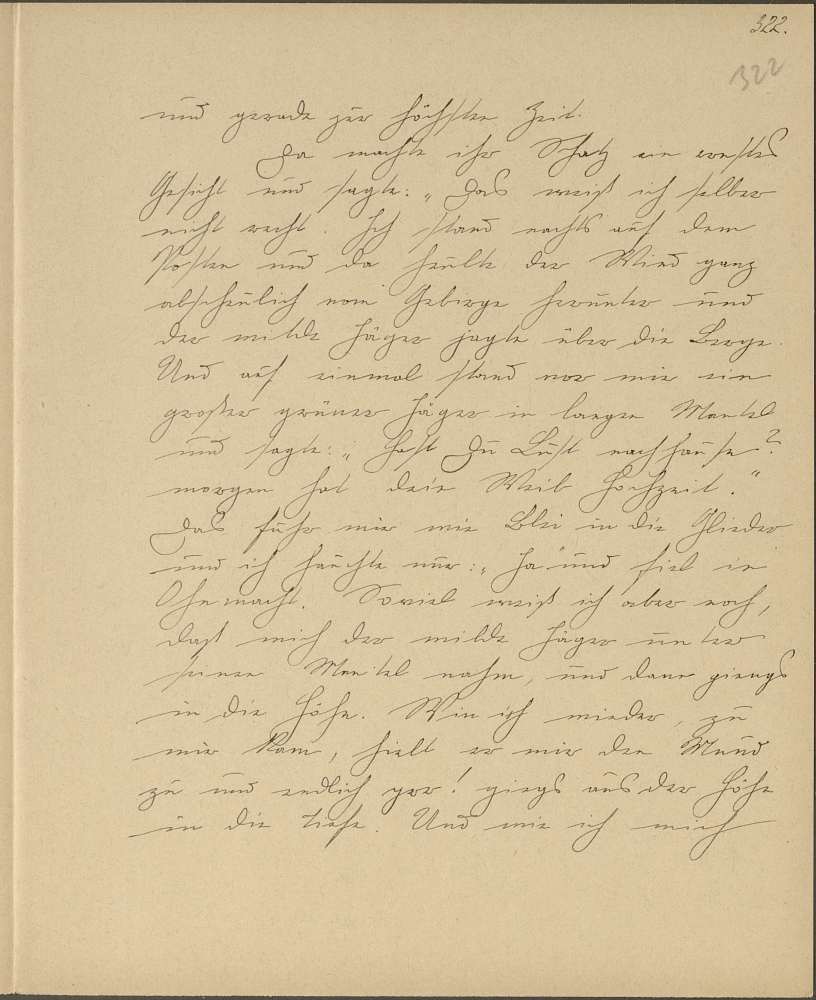 322.
322
und gerade zur höchsten Zeit.
Da machte ihr Schatz ein ernstes
Gesicht und sagte: „Das weiß ich selber
nicht recht. Ich stand nachts auf dem
Posten und da heulte der Wind ganz
abscheulich vom Gebirge herunter und
der wilde Jäger jagte über die Berge.
Und auf einmal stand vor mir ein
großer grüner Jäger in langen Mantel
und sagte: „Hast Du Lust nachhause?
morgen hat dein Weib Hochzeit."
Das fuhr mir wie Blei in die Glieder
und ich hauchte nur: „Ja" und fiel in
Ohnmacht. Soviel weiß ich aber noch,
daß mich der wilde Jäger unter
seinen Mantel nahm, und dann giengs
in die Höhe. Wie ich wieder, zu
mir kam, hielt er mir den Mund
zu und endlich prr! giengs aus der Höhe
in die Tiefe. Und wie ich mich